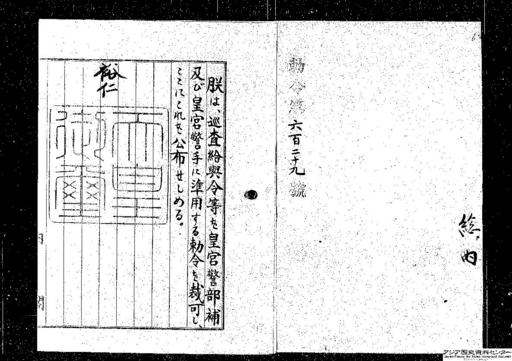 勅令第六百二十九號
総、内
朕は、巡査給與令等を皇宮警部補
及び皇宮警手に準用する勅令を裁可し、
ここにこれを公布せしめる。
裕仁
天皇御璽
内閣
アジア歴史資料センター